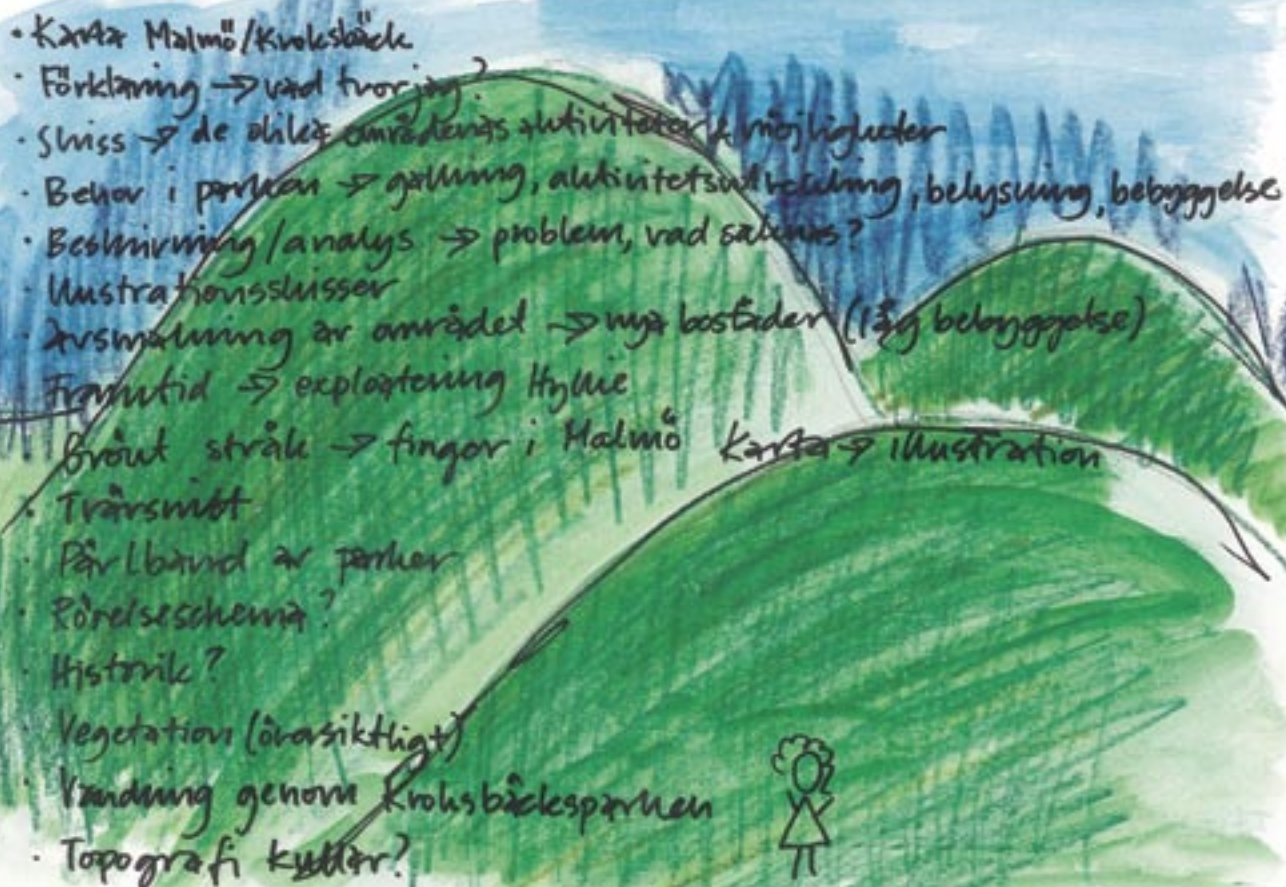 · Karta Malmö/Kroksbäck
· Förklaring → vad tror jag?
· Skiss → de olika områdenas aktiviteter & möjligheter
· Behov i parken → gallring, aktivitetsutveckling, belysning, bebyggelse
· Beskrivning/analys → problem, vad saknas?
· Illustrationsskisser
· Avsmalning av området → nya bostäder (låg bebyggelse)
Framtid → exploatering Hyllie
Grönt stråk → fingar i Malmö Karta → illustration
· Tvärsnitt
· Pärlband av parker
· Rörelseschema?
· Historik?
Vegetation (översiktligt)
· Vandring genom Kroksbäcksparken
· Topografi kullar?